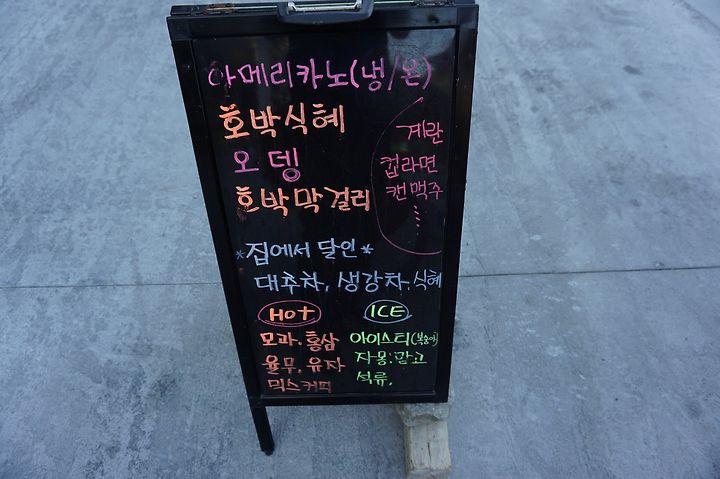 아메리카노(냉/온)
호박식혜
오뎅
호박막걸리
계란
컵라면
캔맥주
*집에서 달인*
대추차, 생강차.식혜
HOT
모과.홍삼
율무, 유자
믹스커피
ICE
아이스티(복숭아)
자몽.망고
석류.